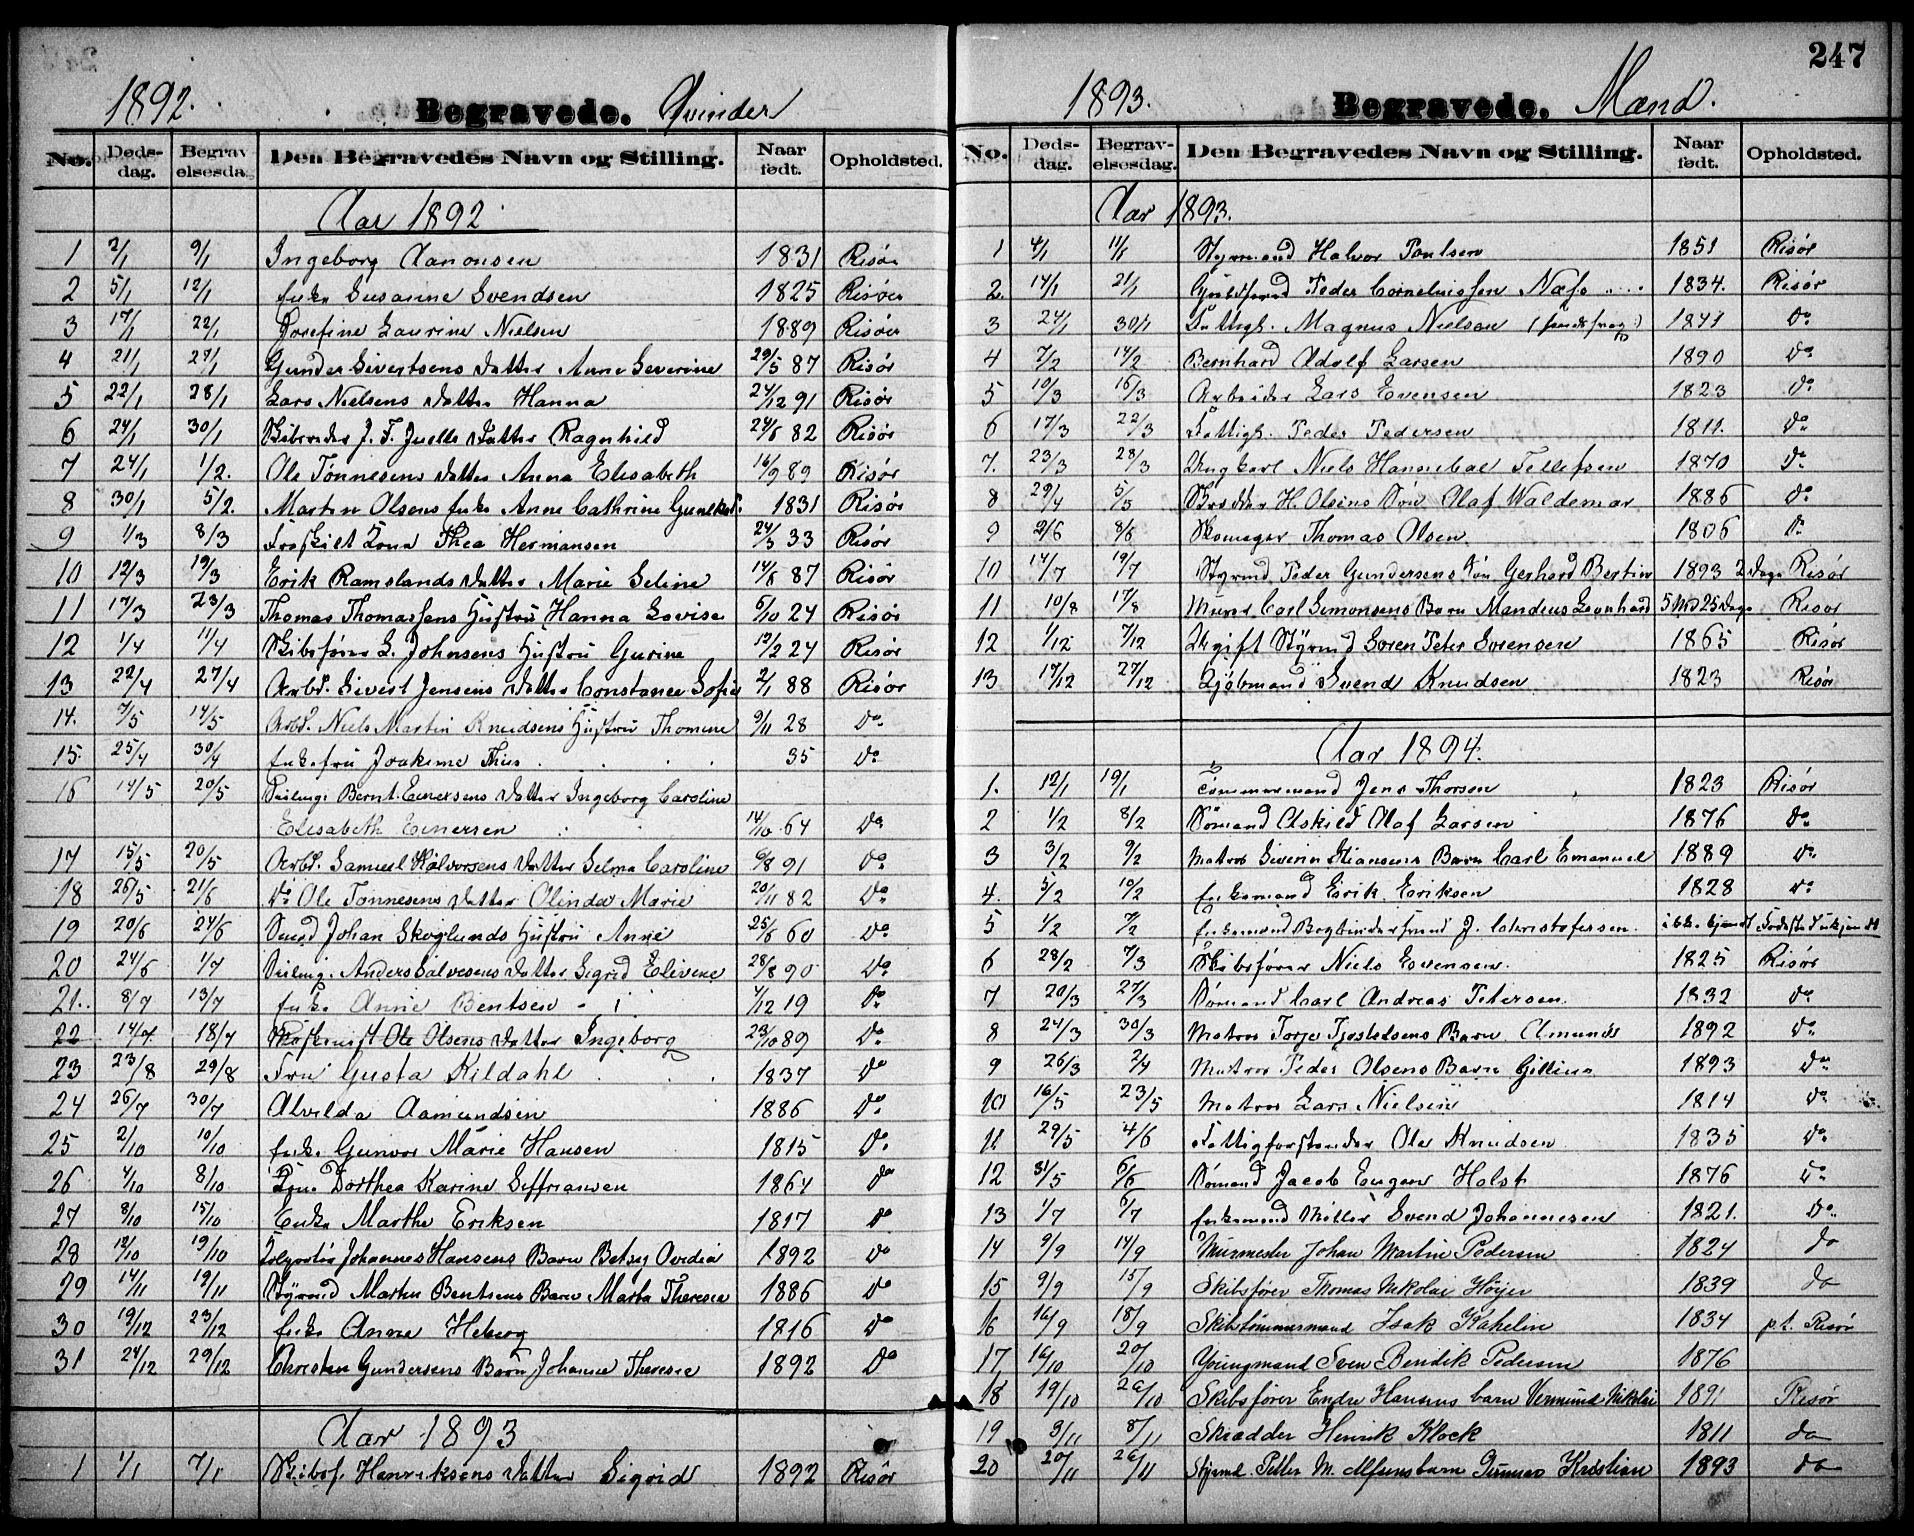 1892. Begravede. Qvinder
No. Døds-dag. Begravelsesda Den Begravedes Navn og Stilling. Naar født. Opholdsted.
Aar 1892
1 2/1 9/1 Ingeborg Aanonsen 1831 Risør
2 5/1 12/1 Enke Susanne Svendsen 1825 Risøer
3 17/1 22/1 Josefine Laurine Nielsen 1889 Risøer
4 21/1 27/1 Gunder Sivertsens Datter Anne Severine 29/5 87 Risør
5 22/1 28/1 Lars Nielsens Datter Hanna 24/12 91 Risør
6 24/1 30/1 J. F. Juells Datter Ragnhild 24/6 82 Risør
7 24/1 1/2. Ole Tønnesens Datter Anna Elisabeth 16/9 89 Risør
8 30/1 5/2. Martin Olsens Enke Anne Cathrine 1831 Risør
9 1/3 8/3 Kona Thea Hermansen 24/3 33 Risør
10 12/3 19/3 Erik Ramslands Datter Marie Seline 14/6 87 Risør
11 17/3 23/3 Thomas Thomassens Hustru Hanna Lovise 6/10 24 Risør
12 1/4 11/4 Skibsfører L. Johnsens Hustru Gurine 12/2 24 Risør
13 22/4 27/4 Arbd. Sivert Jensens Datter Constance Sofie 2/1 88 Risør
14. 7/5 14/5 Arbd. Niels Martin Knudsens Hustru Thomine 9/11 28 Do
15. 25/4 30/4 Enkefru Joakime Thiis 35 Do
16 14/5 20/5 Bernt Einersens Datter Ingeborg Caroline
Elisabeth Einersen 14/10 64 Do
17 15/5 20/5 Arbd. Samuel Halvorsens Datter Selma Caroline 6/8 91 Do
18 26/5 21/6 Do Ole Tønnesens Datter Olinda Marie 20/11 82 Do
19 20/6 24/6 Smed Johan Skoglunds Hustru Anne 25/6 60 Do
20 24/6 1/7 Anders Salvesens Datter Sigrid Elivine 28/8 90 Do
21. 8/7 13/7 Enke Anne Bentsen 4/12 19 Do
22 14/7 18/7 Ole Olsens Datter Ingeborg 23/10 89 Do
23 23/8 29/8 Fru Gusta Kildahl 1837 Do
24 26/7 30/7 Alvilda Aamundsen 1886 Do
25 2/10 10/10 Enke Gunvor Marie Hansen 1815 Do
26 4/10 8/10 Dorthea Karine 1864 Do
27 8/10 15/10 Enke Marthe Eriksen 1817 Do
28 12/10 19/10 Johannes Hansens Barn Betsy Ovidia 1892 Do
29 14/11 19/11 Styrmd Martin Bentsens Barn Marta Theresie 1886 Do
30 19/12 23/12 Enke Anne Heberg 1816 Do
31 24/12 29/12 Christen Gundersens Barn Johanne Theresie 1892 Do
Aar 1893
1 1/1 7/1 Skibsf. Henriksens Datter Sigrid 1892 Risør
247
1893. Begravede. Mænd.
No. Døds-dag. Begrav-elsesdag. Den Begravedes Navn og Stilling. Naar født. Opholdsted.
Aar 1893.
1 4/1 11/1 Styrmand Halvor Poulsen 1851 Risør
2. 14/1 21/1 Peder Corneliussen Næss 1834. Risør
3 24/1 30/1 Fattigl. Magnus Nielsen 1841 Do
4 7/2 14/2 Bernhard Adolf Larsen 1890 Do
5 10/3 16/3 Arbeider Lars Evensen 1823 Do
6 17/3 22/3 Fattigl. Peder Pedersen 1811. Do
7. 23/3 28/3 Ungkarl Niels Hannibal Tellefsen 1870 Do
8 29/4 5/5 Skredder H. Olsens Søn Olaf Waldemar 1886 Do
9 2/6 8/6 Skomager Thomas Olsen 1806 Do
10 14/7 19/7 Styrmd Peder Gundersens Søn Gerhard Bertin 1893 2 Dage Risør
11 10/8 17/8 Murer Carl Simonsens Barn Mandius Leonhard 5 Md 25 Dage Risør
12 1/12 7/12 Ugift Styrmd Søren Peter Sørensen 1865 Risør
13 17/12 27/12 Kjøbmand Svend Knudsen 1823 Risør
Aar 1894.
1. 12/1 19/1 Tømmermand Jens Thorsen 1823 Risør
2 1/2 8/2 Sømand Askild Olaf Larsen 1876 Do
3 3/2 9/2 Matros Severin Stiansens Barn Carl Emanuel 1889 Do
4. 5/2 10/2 Enkemand Eerik Eeriksen 1828 Do
5 1/2 7/2 Enkemand J. Christofersen.
6 28/2 7/3 Skibsfører Niels Evensen. 1825 Risør
7 20/3 27/3 Sømand Carl Andreas Petersen 1832 Do
8 24/3 30/3 Matros Torje Tjostelsens Barn Amund 1892 Do
9 26/3 2/4 Matros Peder Olsens Barn 1893 Do
10 16/5 23/5 Matros Lars Nielsen 1814 Do
11 29/5 4/6 Fattigforstander Ole Knudsen 1835 Do
12 31/5 6/6 Sømand Jacob Eugen Holst 1876 Do
13 1/7 6/7 Enkemand Møller Svend Johannesen 1821. Do
14 9/9 14/9 Murmester Johan Martin Pedersen 1824 do
15 9/9 15/9 Skibsfører Thomas Nikolai Høyer 1839 do
16 16/9 18/9 Skibstømmermand Isak Kahelin 1834 pt. Risør
17 16/10 20/10 Youngmand Sven Bendik Pedersen 1876
18 19/10 26/10 Skibsfører Endre Hansens barn Vermund Nikolai 1891 Risør
19 3/11 8/11 Skrædder Henrik Klock 1811 do
20 20/11 26/11 Styrmd. Petter M. Alfsens barn Gunnar Kristian 1893 do